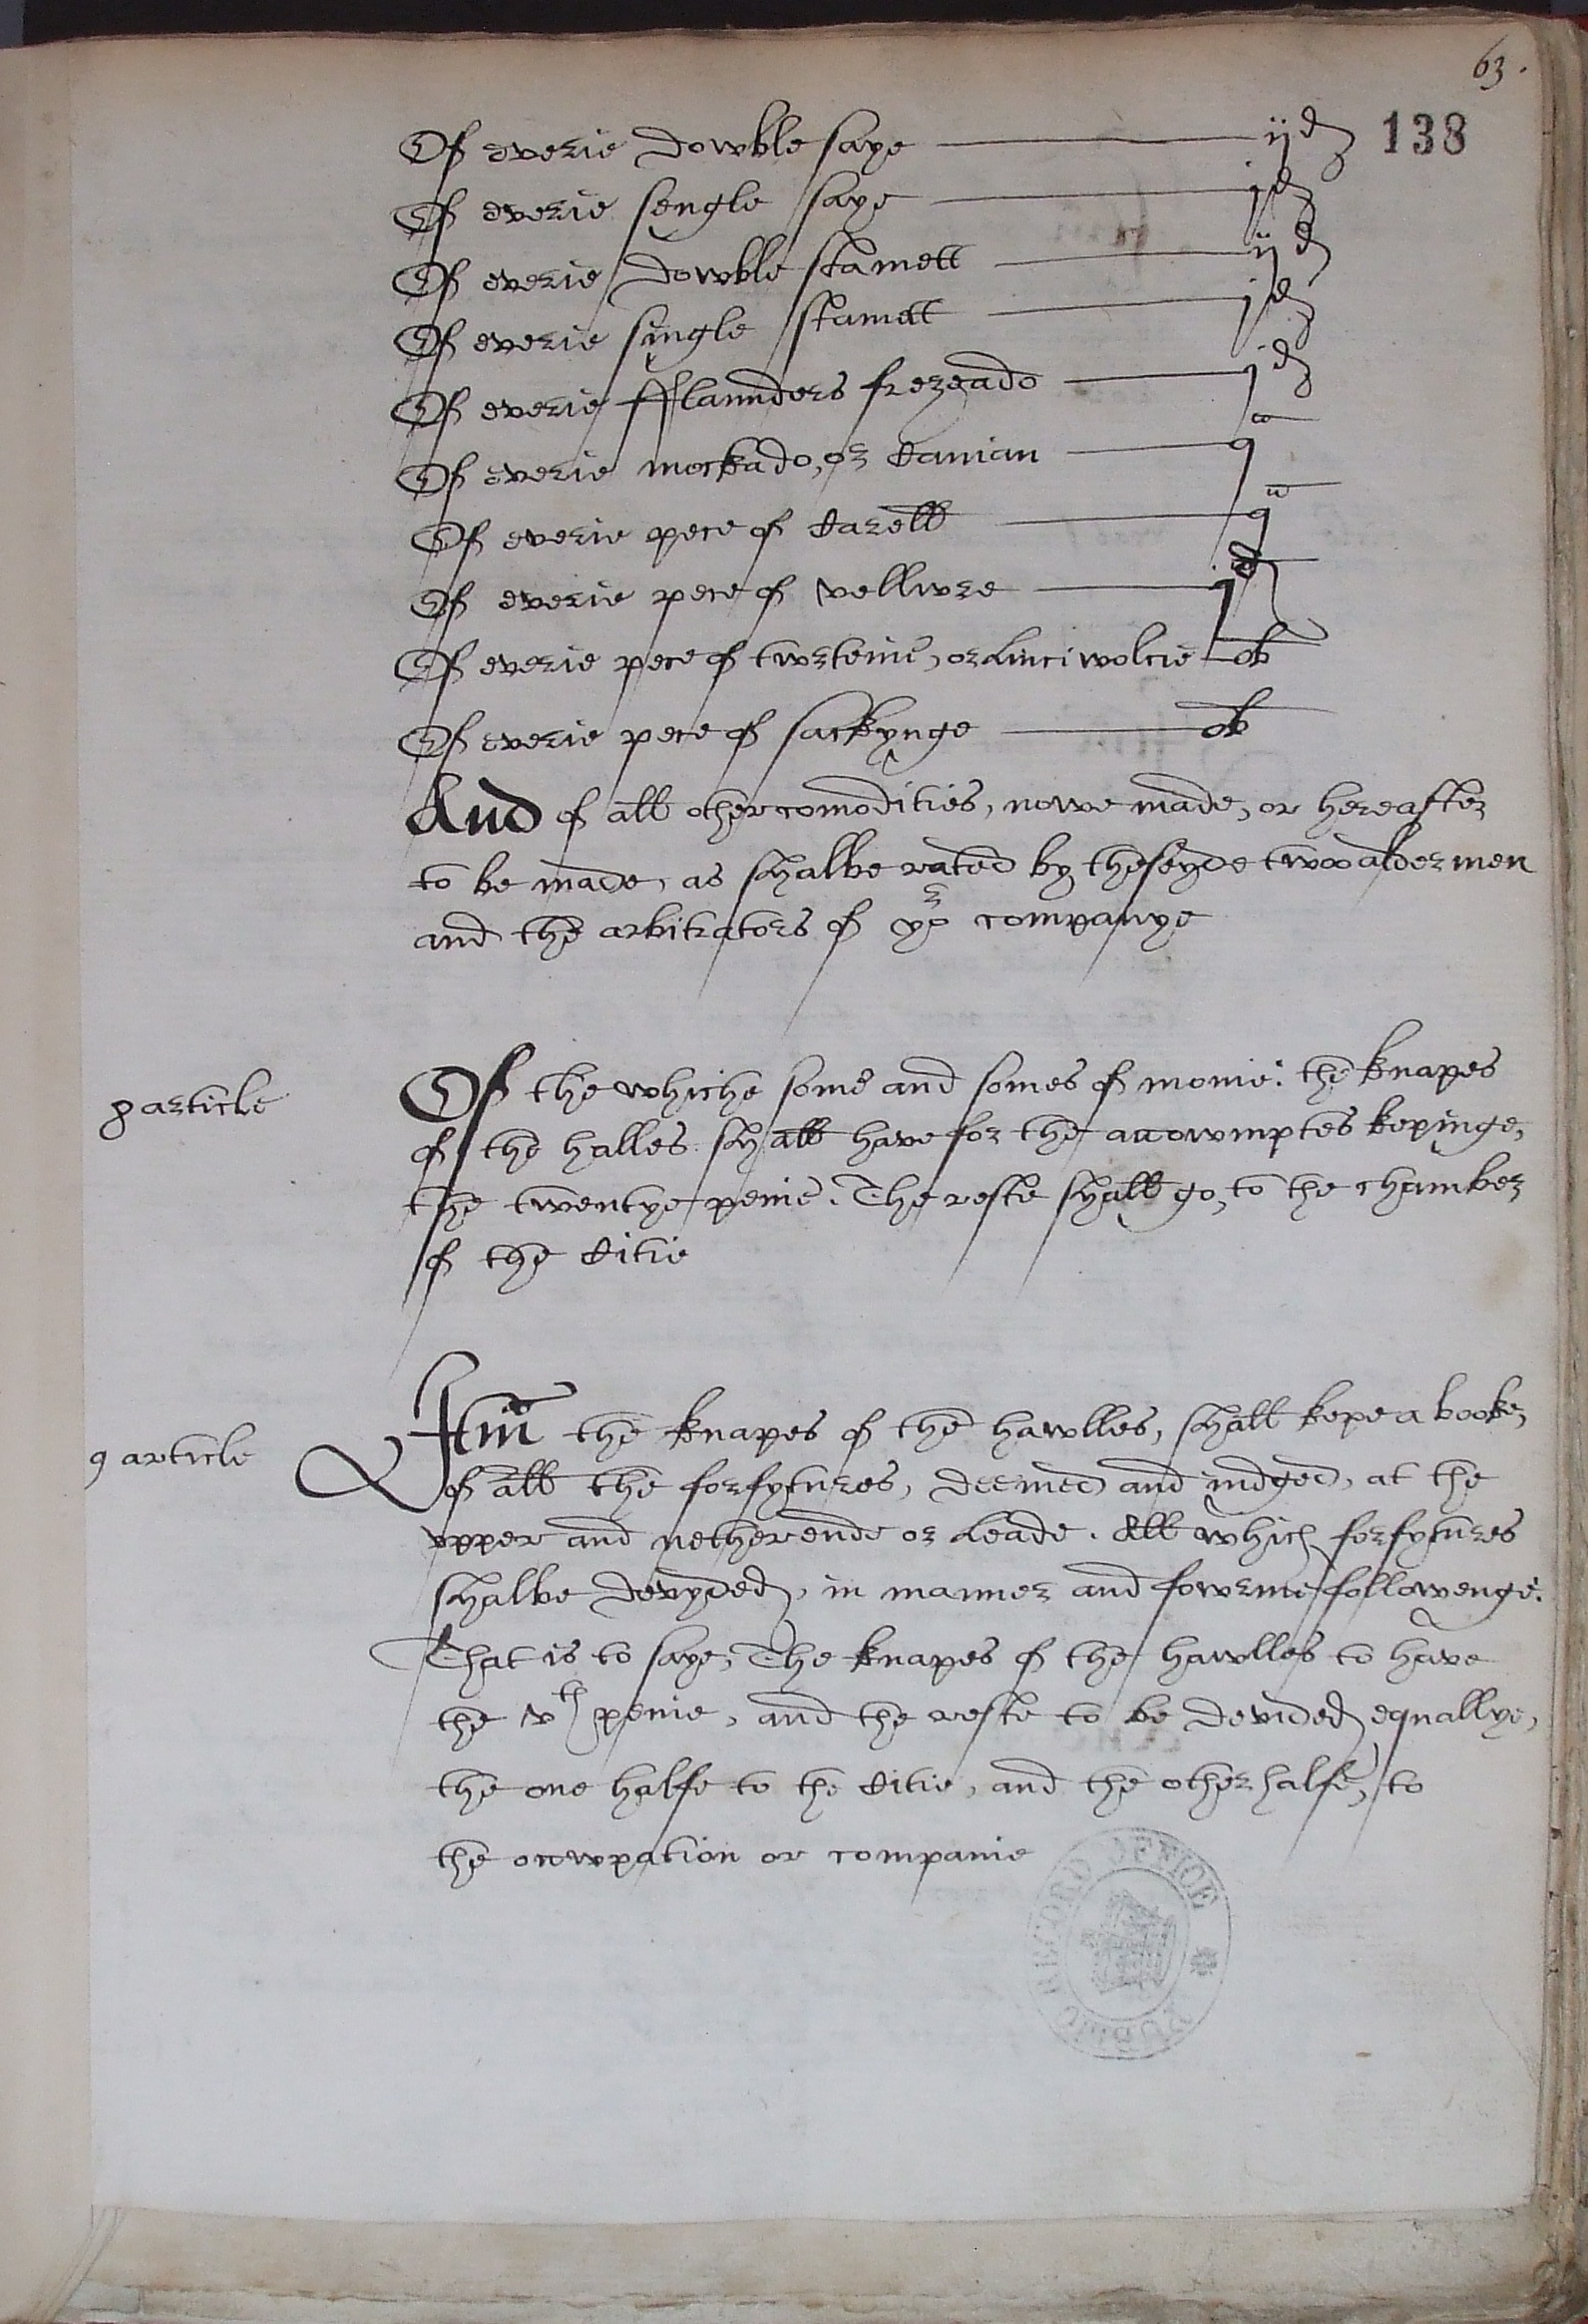 63.
138
Of everie dowble saye ijd
Of everie sengle saye jd
Of everie dowble stamett ijd
Of everie single stamett jd
Of everie fflaunders frezeado jd
Of everie mockado, or Canian q
Of everie pece of Carell q
Of everie pece of vellure jd
Of everie pece of twrteine, or Linciwolcie ob
Of everie pece of sackynge ob
And of all other comodities, nowe made, or hereafter
to be made, as shalbe rated by the seyde twoo aldermen
and the arbitrators of yor companye
8 article
Of the whiche some and somes of monie: the knapes
of the halles shall have for the accowmptes kepinge,
the twentye penie. The reste shall go, to the chamber
of the Citie
9 article
Itm the knapes of the hawlles, shall kepe a booke,
of all the forfytures, deemed and iudged, at the
vpper and nether ende or Leade. All which forfytures
shalbe devyded, in manner and fowrme followenge.
That is to saye, The knapes of the hawlles to have
the vth penie, and the reste to be devided equallye,
the one halfe to the Citie, and the other halfe, to
the occwpation or companie
PUBLIC RECORD OFFICE